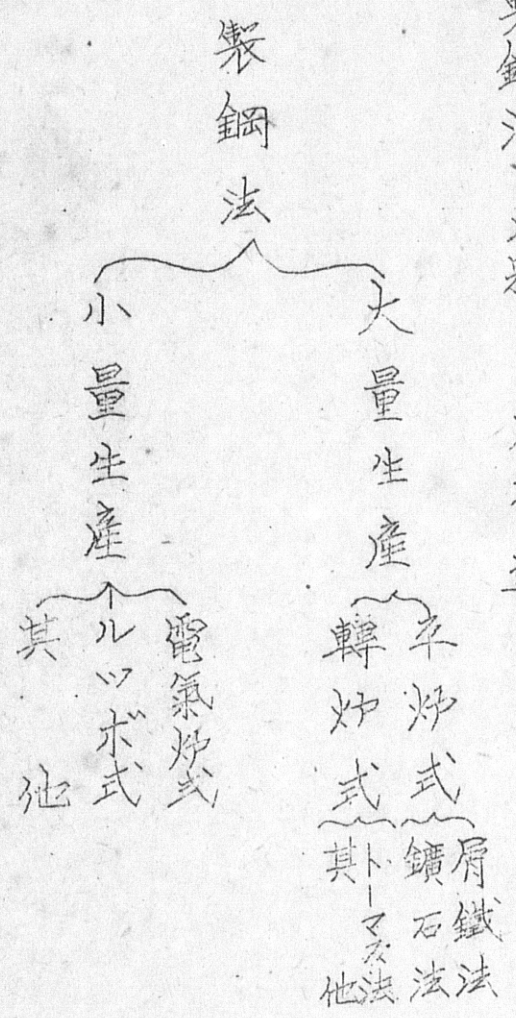 製鋼法
大量生産
平炉式
屑鐵法
鑛石法
轉炉式
トーマス法
其他
小量生産
電氣炉式
ルツボ式
其他